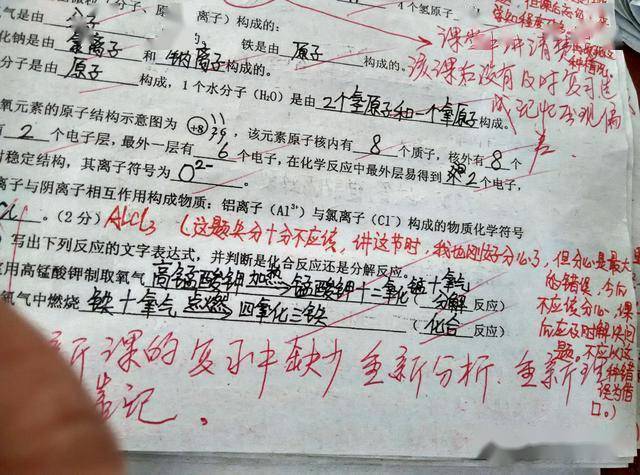 4个氢原子
气是由 分子 构成的；
离子）构成的：
化钠是由 氯离子 和 钠离子 构成的。 铁是由 原子 构成的。
分子是由 原子 构成，1个水分子（H₂O）是由 2个氢原子和一个氧原子构成。
课后没有及时复习
氧元素的原子结构示意图为 +8，该元素原子核内有 8 个质子，核外有 8 个
有 2 个电子层，最外一层有 6 个电子，在化学反应中最外层易得到 2 个电子，
对稳定结构，其离子符号为 O²⁻
离子与阴离子相互作用构成物质：铝离子（Al³⁺）与氯离子（Cl⁻）构成的物质化学符号
。（2分）AlCl₃（这题失分十分不应该，讲这节时，我也刚好分心了，但分心是最大
的错误，今后
不应该分心，课
后应及时解决问
题，不应以这
种错
误为借
口。）
写出下列反应的文字表达式，并判断是化合反应还是分解反应。
用高锰酸钾制取氧气 高锰酸钾 加热 锰酸钾＋二氧化锰＋氧气（分解 反应）
氧气中燃烧 铁＋氧气 点燃 四氧化三铁（化合 反应）
新课的复习中缺少重新分析，重新
笔记。